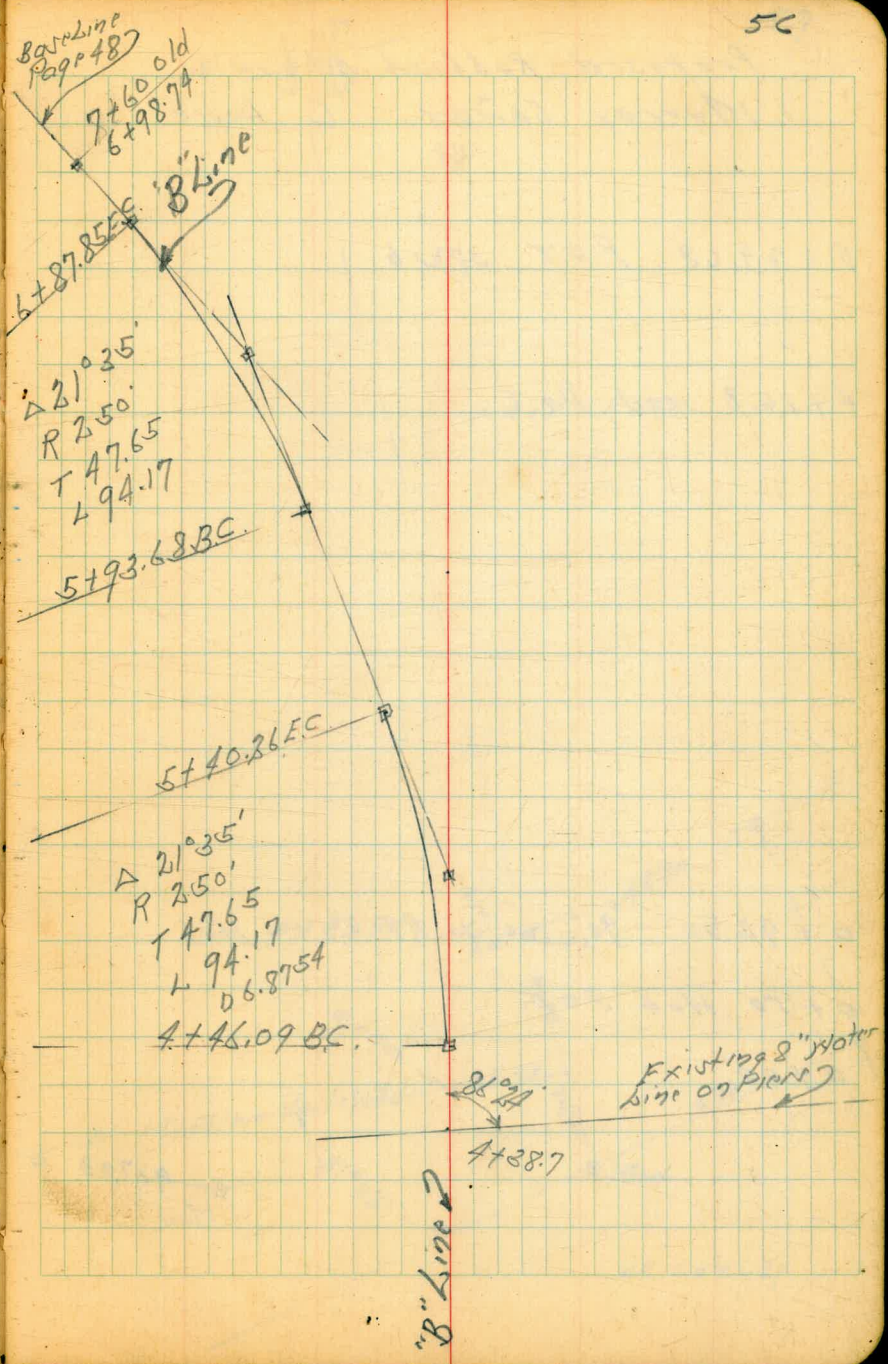 56
BaseLine
Page 48
7+60 old
6+98.74
"B" Line
6+87.85 E.C.
Δ 21°35'
R 250'
T 47.65
L 94.17
5+93.68 B.C.
5+40.26 E.C.
Δ 21°35'
R 250'
T 47.65
L 94.17
D 6.8754
4+46.09 B.C.
86°24'
Existing 8" Water
Line on Piers
4+38.7
"B" Line